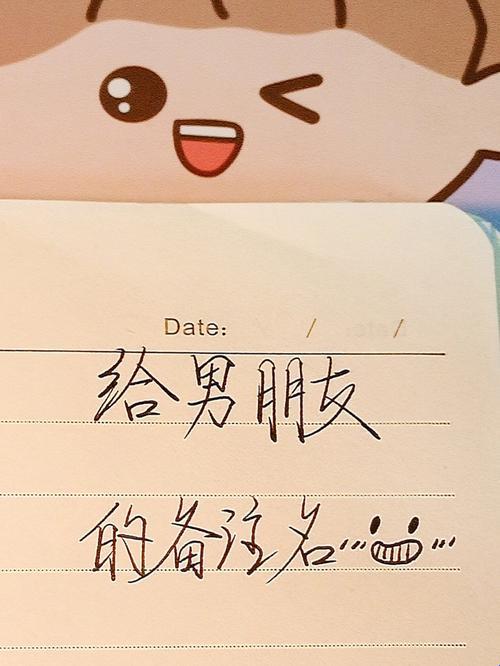 Date: / /
给男朋友
的备注名